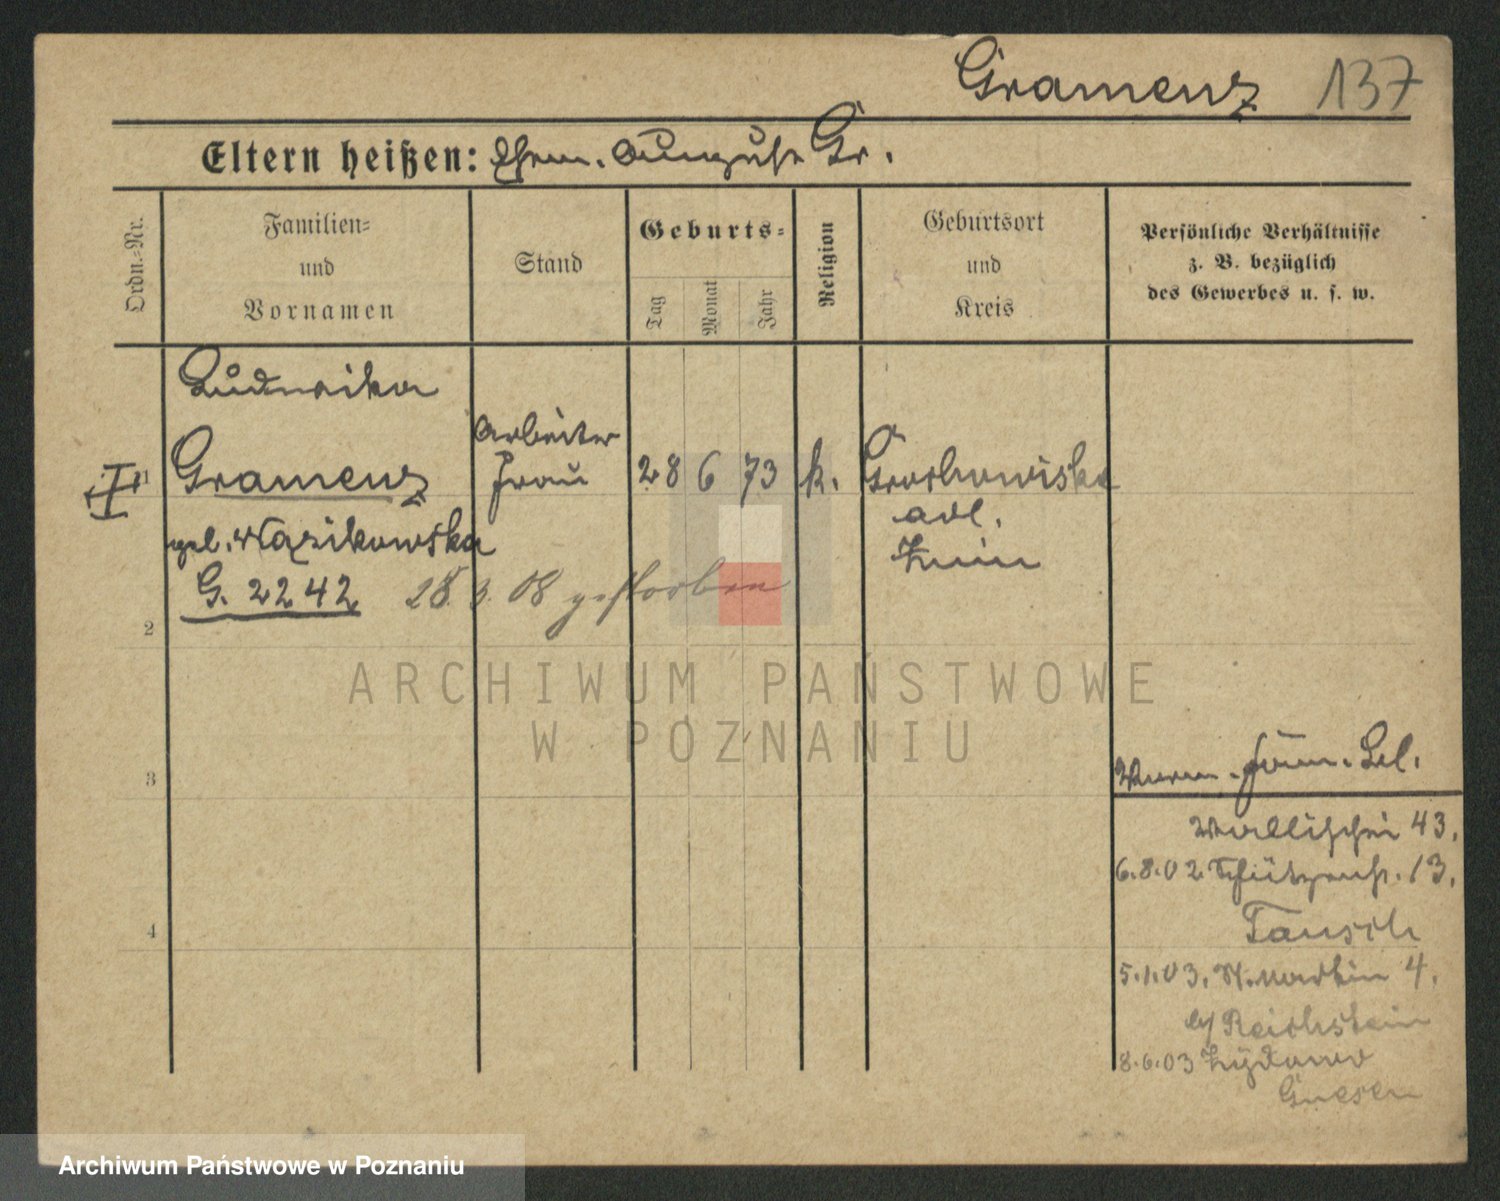 Gramenz 137
Eltern heißen: Ehem. August Gr.
Ordn.-Nr.
Familien-
und
Vornamen
Stand
Geburts-
Tag
Monat
Jahr
Religion
Geburtsort
und
Kreis
Persönliche Verhältnisse
z. B. bezüglich
des Gewerbes u. s. w.
Ludwika
Gramenz
Arbeiter
Frau
28 6 73 k.
Grochowiska
adl.
Znin
1
geb.
G. 2242
28. 3. 08 gestorben
2
3
4
Wallischei 43.
6.8.02. Schützenstr. 13.
Tausch
5.1.03. St. Martin 4.
b/ Reichstein
8.6.03 Zydowo
Gnesen
ARCHIWUM PAŃSTWOWE
W POZNANIU
Archiwum Państwowe w Poznaniu